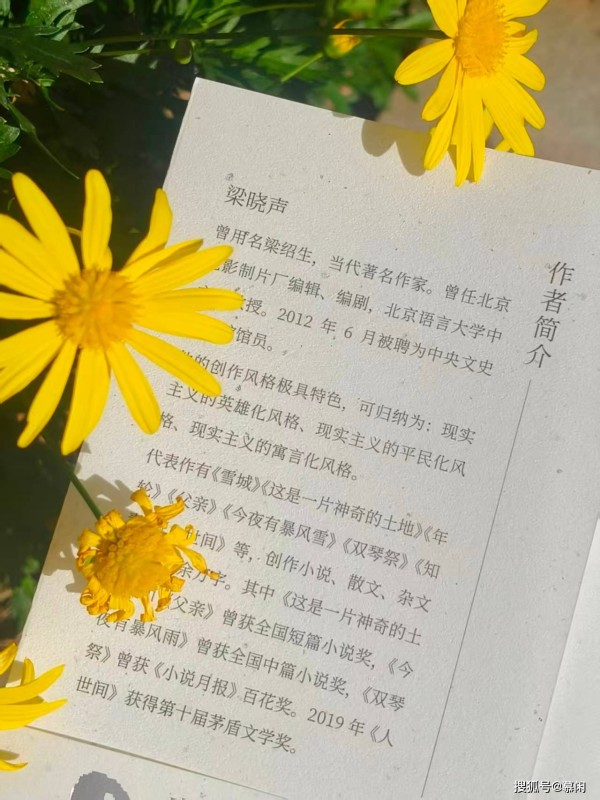 作者简介
梁晓声
曾用名梁绍生，当代著名作家。曾任北京
影制片厂编辑、编剧，北京语言大学中
授。2012 年 6 月被聘为中央文史
馆员。
的创作风格极具特色，可归纳为：现实
主义的英雄化风格、现实主义的平民化风
格、现实主义的寓言化风格。
代表作有《雪城》《这是一片神奇的土地》《年
轮》《父亲》《今夜有暴风雪》《双琴祭》《知
世间》等，创作小说、散文、杂文
余万字。其中《这是一片神奇的土
父亲》曾获全国短篇小说奖，《今
夜有暴风雨》曾获全国中篇小说奖，《双琴
祭》曾获《小说月报》百花奖。2019 年《人
世间》获得第十届茅盾文学奖。
搜狐号@慕闲